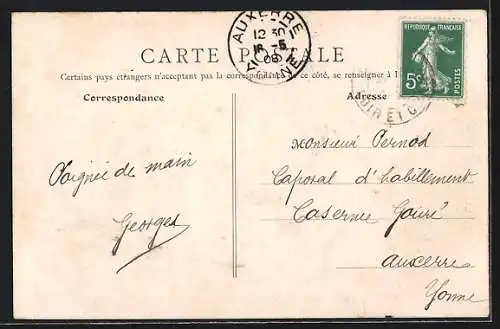 AUXERRE
12 30
16 -5
08
YONNE
CARTE POSTALE
REPUBLIQUE FRANÇAISE
5c
POSTES
Certains pays étrangers n'acceptent pas la correspondance de ce côté, se renseigner à
Correspondance
Adresse
LOIR ET C
Poignée de main
Georges
Monsieur Pernod
Caporal d'habillement
Caserne Gouré
Auxerre
Yonne